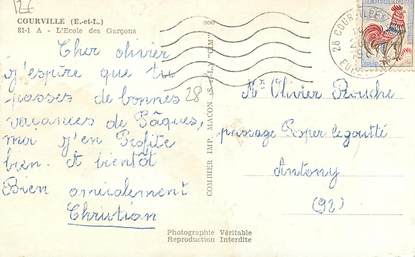 12€
COURVILLE (E.-et-L.)
81-1 A - L'Ecole des Garçons
Cher olivier
j'espère que tu
passes de bonnes
vacances de Pâques,
moi j'en Profite
bien. et bientôt
Bien amicalement
Christian
28
COMBIER IMP. MACON
28 COURVILLE
Mr Olivier Rouche
passage Prosper legoutté
Antony
(92)
Photographie Véritable
Reproduction Interdite